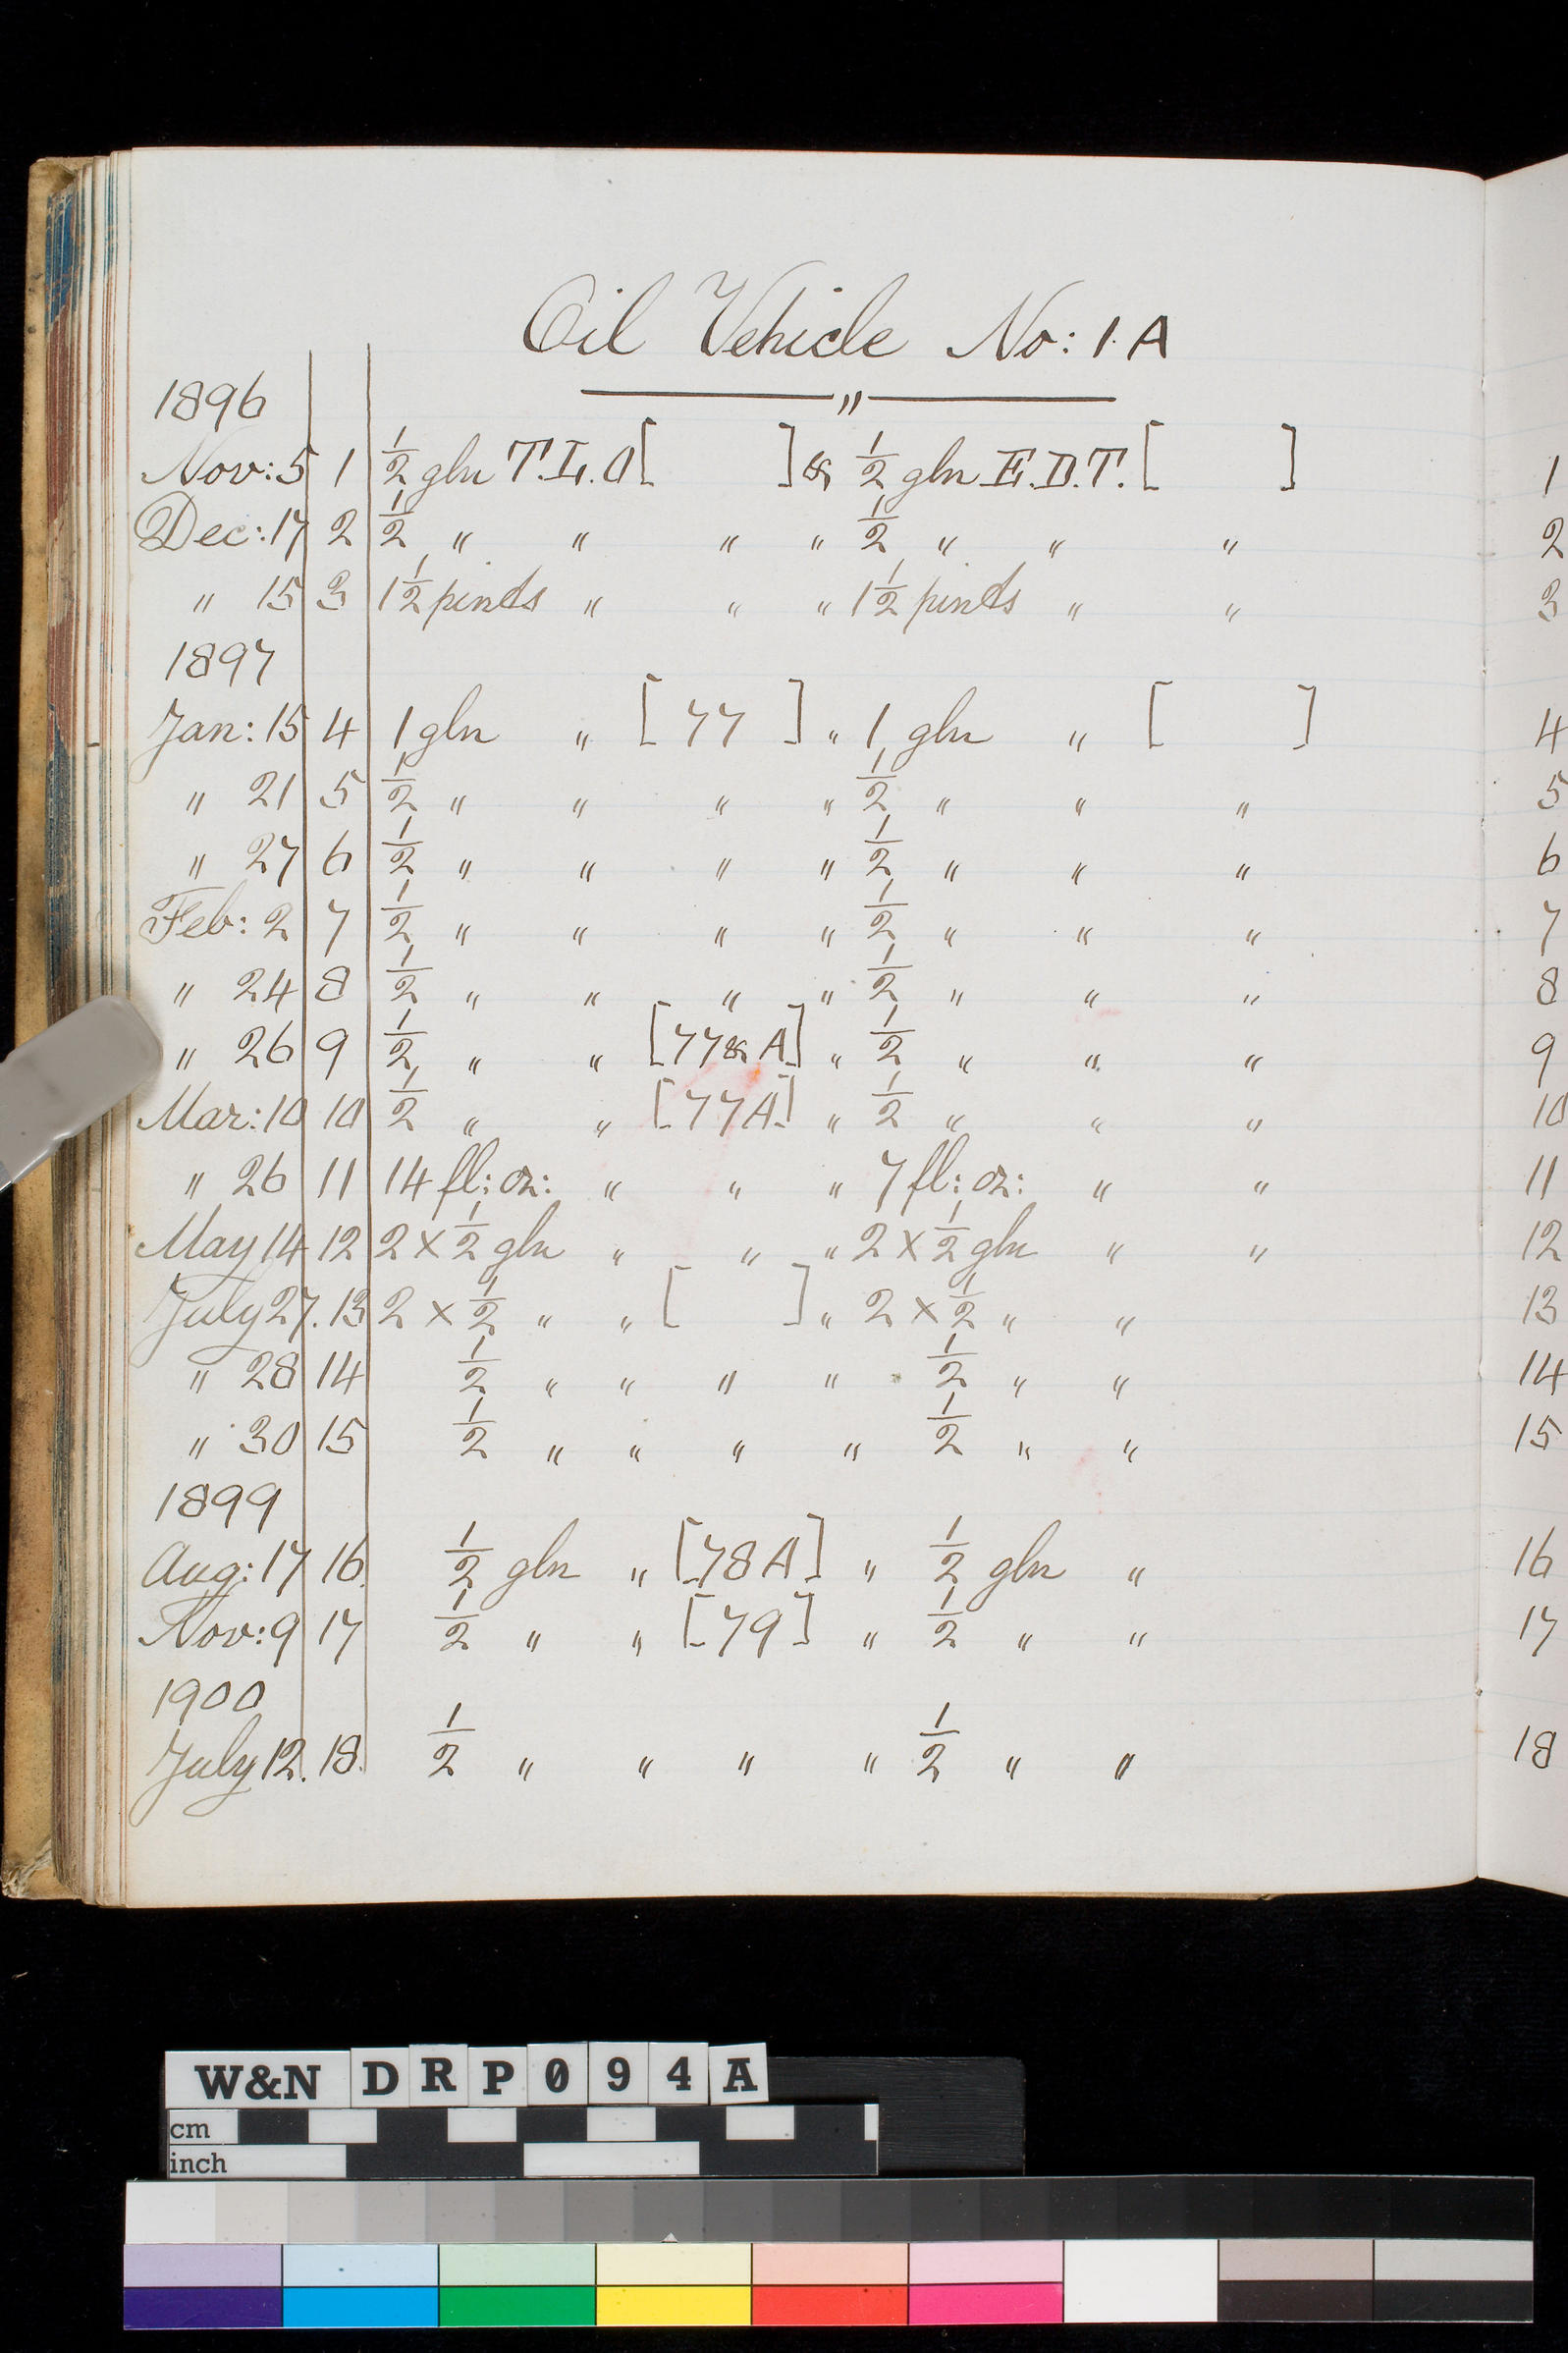 Oil Vehicle No: 1.A
1896
Nov: 5 1 ½ gln T.L.O [ ] & ½ gln E.D.T. [ ] 1
Dec: 17 2 ½ " " " " ½ " " " 2
" 15 3 1½ pints " " " 1½ pints " " 3
1897
Jan: 15 4 1 gln " [ 77 ] " 1 gln " [ ] 4
" 21 5 ½ " " " " ½ " " " 5
" 27 6 ½ " " " " ½ " " " 6
Feb: 2 7 ½ " " " " ½ " " " 7
" 24 8 ½ " " " " ½ " " " 8
" 26 9 ½ " " [77 & A] " ½ " " " 9
Mar: 10 10 ½ " " [77A] " ½ " " " 10
" 26 11 14 fl: oz: " " " 7 fl: oz: " " 11
May 14 12 2 x ½ gln " " " 2 x ½ gln " " 12
July 27. 13 2 x ½ " " [ ] " 2 x ½ " " 13
" 28 14 ½ " " " " ½ " " 14
" 30 15 ½ " " " " ½ " " 15
1899
Aug: 17 16. ½ gln " [78A] " ½ gln " 16
Nov: 9 17 ½ " " [79] " ½ " " 17
1900
July 12. 18. ½ " " " " ½ " " 18
W&N DRP094A
cm
inch